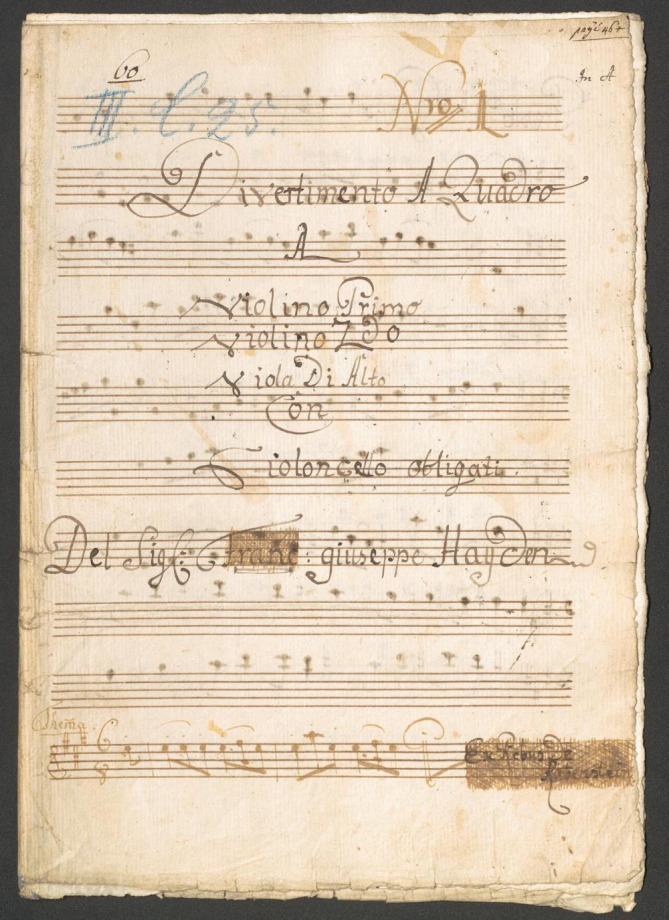 page 467
60
In A
III. C. 25.
Nro 1
Divertimento A Quadro
A
Violino Primo
Violino 2do
Viola Di Alto
Con
Violoncello obligati.
Del Sigl: Franc: giuseppe Hayden
Thema.
Ex Rebus